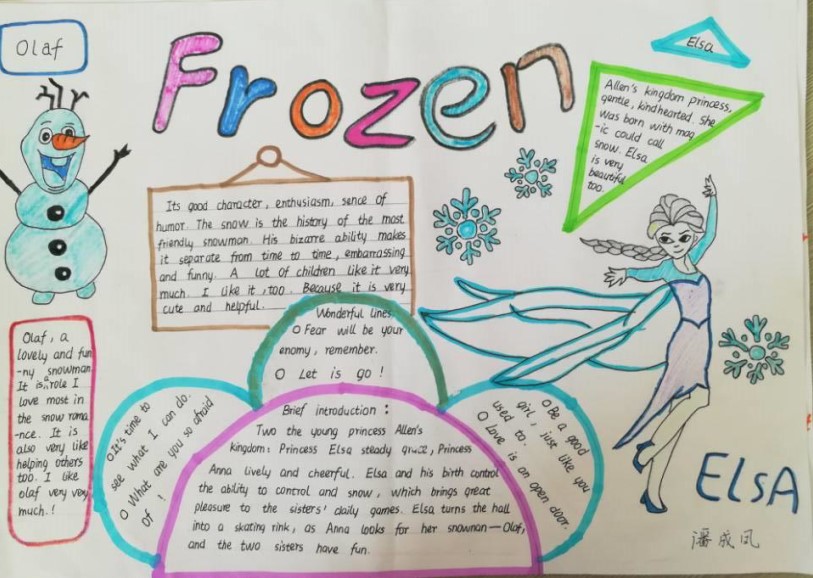 Olaf
Frozen
Elsa
Allen's kingdom princess,
gentle, kindhearted. She
was born with mag
-ic could call
snow. Elsa
is very
beautiful
too.
Its good character, enthusiasm, sence of
humor. The snow is the history of the most
friendly snowman. His bizarre ability makes
it separate from time to time, embarrassing
and funny. A lot of children like it very
much. I like it, too. Because it is very
cute and helpful.
Olaf, a
lovely and fun
-ny snowman.
It is role I
love most in
the snow roma
-nce. It is
also very like
helping others
too. I like
olaf very very
much.!
Wonderful lines
O Fear will be your
enemy, remember.
O Let is go!
O It's time to
see what I can do.
O What are you so afraid
of !
Brief introduction:
Two the young princess Allen's
kingdom: Princess Elsa steady grace, Princess
Anna lively and cheerful. Elsa and his birth control
the ability to control and snow, which brings great
pleasure to the sisters' daily games. Elsa turns the hall
into a skating rink, as Anna looks for her snowman—Olaf,
and the two sisters have fun.
O Be a good
girl, just like you
used to.
O Love is an open door.
ELSA
潘成凤